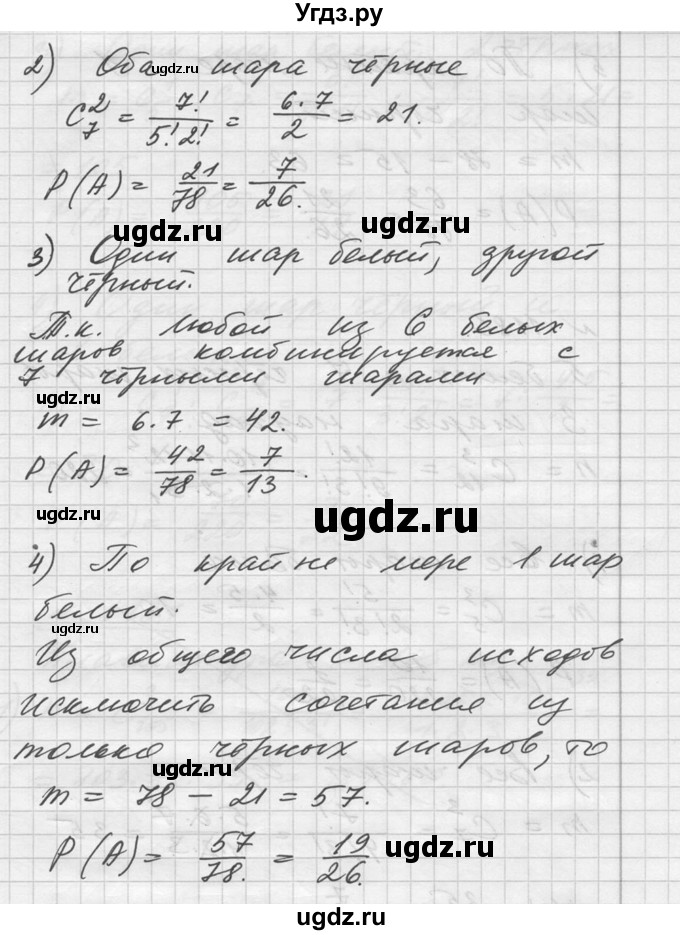 Угдз.ру
2) Оба шара чёрные
C₇² = 7!/5!2! = 6·7/2 = 21.
P(A) = 21/78 = 7/26.
ugdz.ru ugdz.ru
3) Один шар белый, другой
чёрный.
Т.к. любой из 6 белых
шаров комбинируется с
7 чёрными шарами
ugdz.ru
m = 6·7 = 42.
P(A) = 42/78 = 7/13.
ugdz.ru ugdz.ru
4) По крайне мере 1 шар
ugdz.ru
белый.
Из общего числа исходов
ugdz.ru
исключить сочетания из
только чёрных шаров, то
ugdz.ru
m = 78 - 21 = 57.
P(A) = 57/78. = 19/26.
ugdz.ru
ugdz.ru